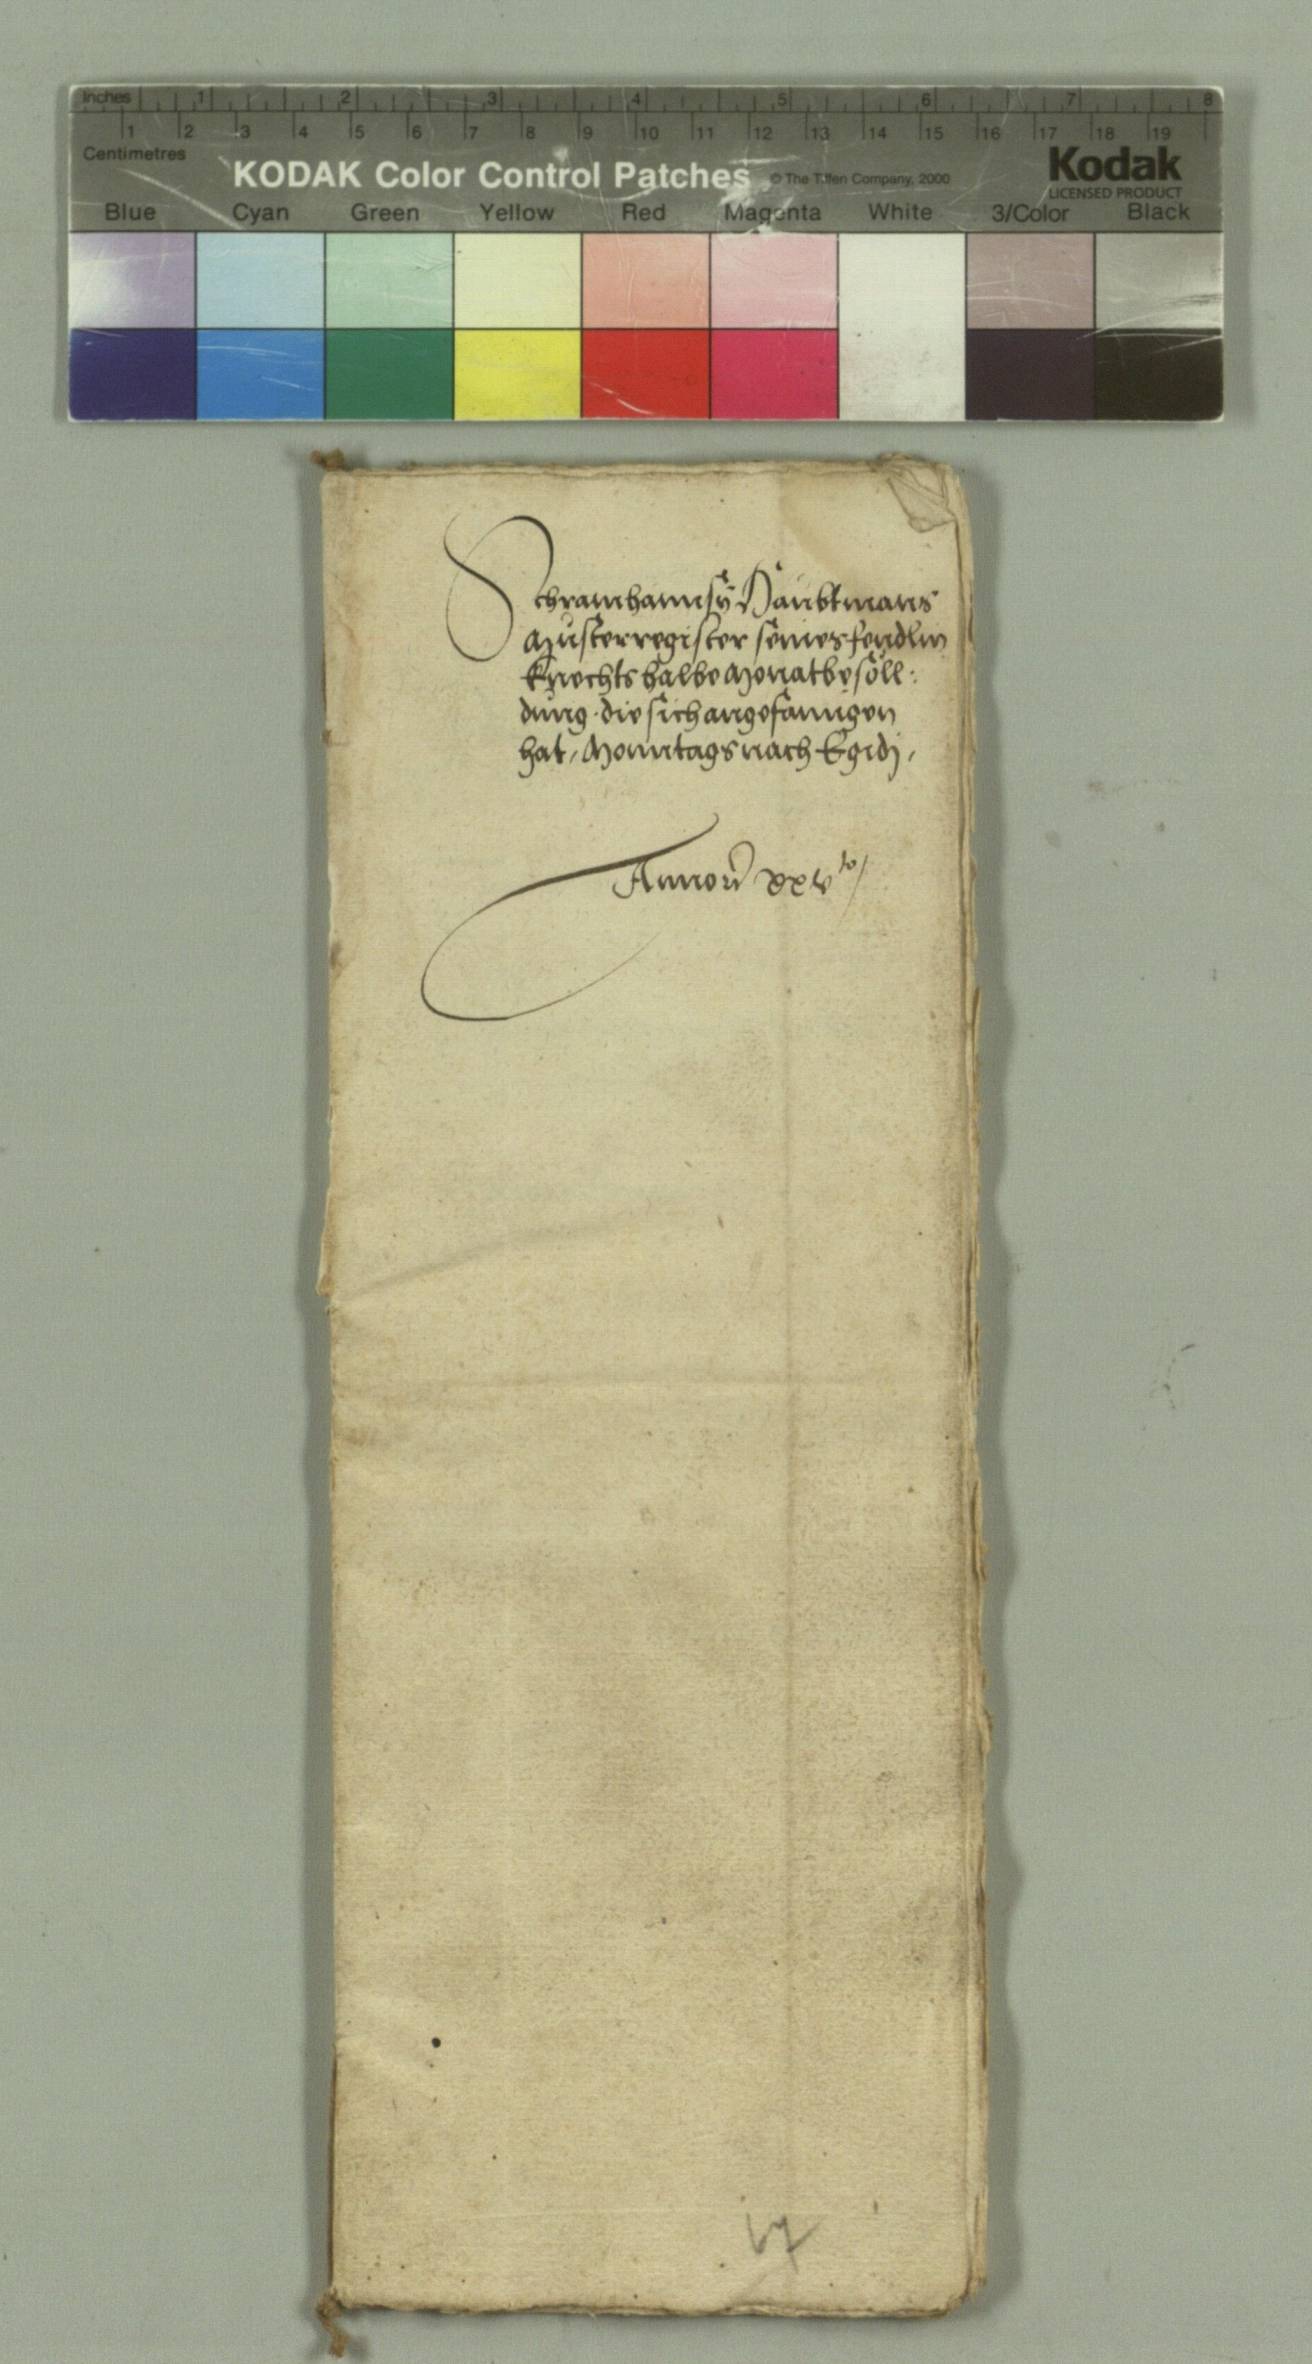 Inches 1 2 3 4 5 6 7 8
1 2 3 4 5 6 7 8 9 10 11 12 13 14 15 16 17 18 19
Centimetres
KODAK Color Control Patches © The Tiffen Company, 2000
Kodak
LICENSED PRODUCT
Blue Cyan Green Yellow Red Magenta White 3/Color Black
Schramhannsÿ Haubtmans
Musterregister seines fendlin
knechts halbe Monat besöll:
dung. die sich angefanngen
hat, Monntags nach Egidj,
Anno &c xxv to/